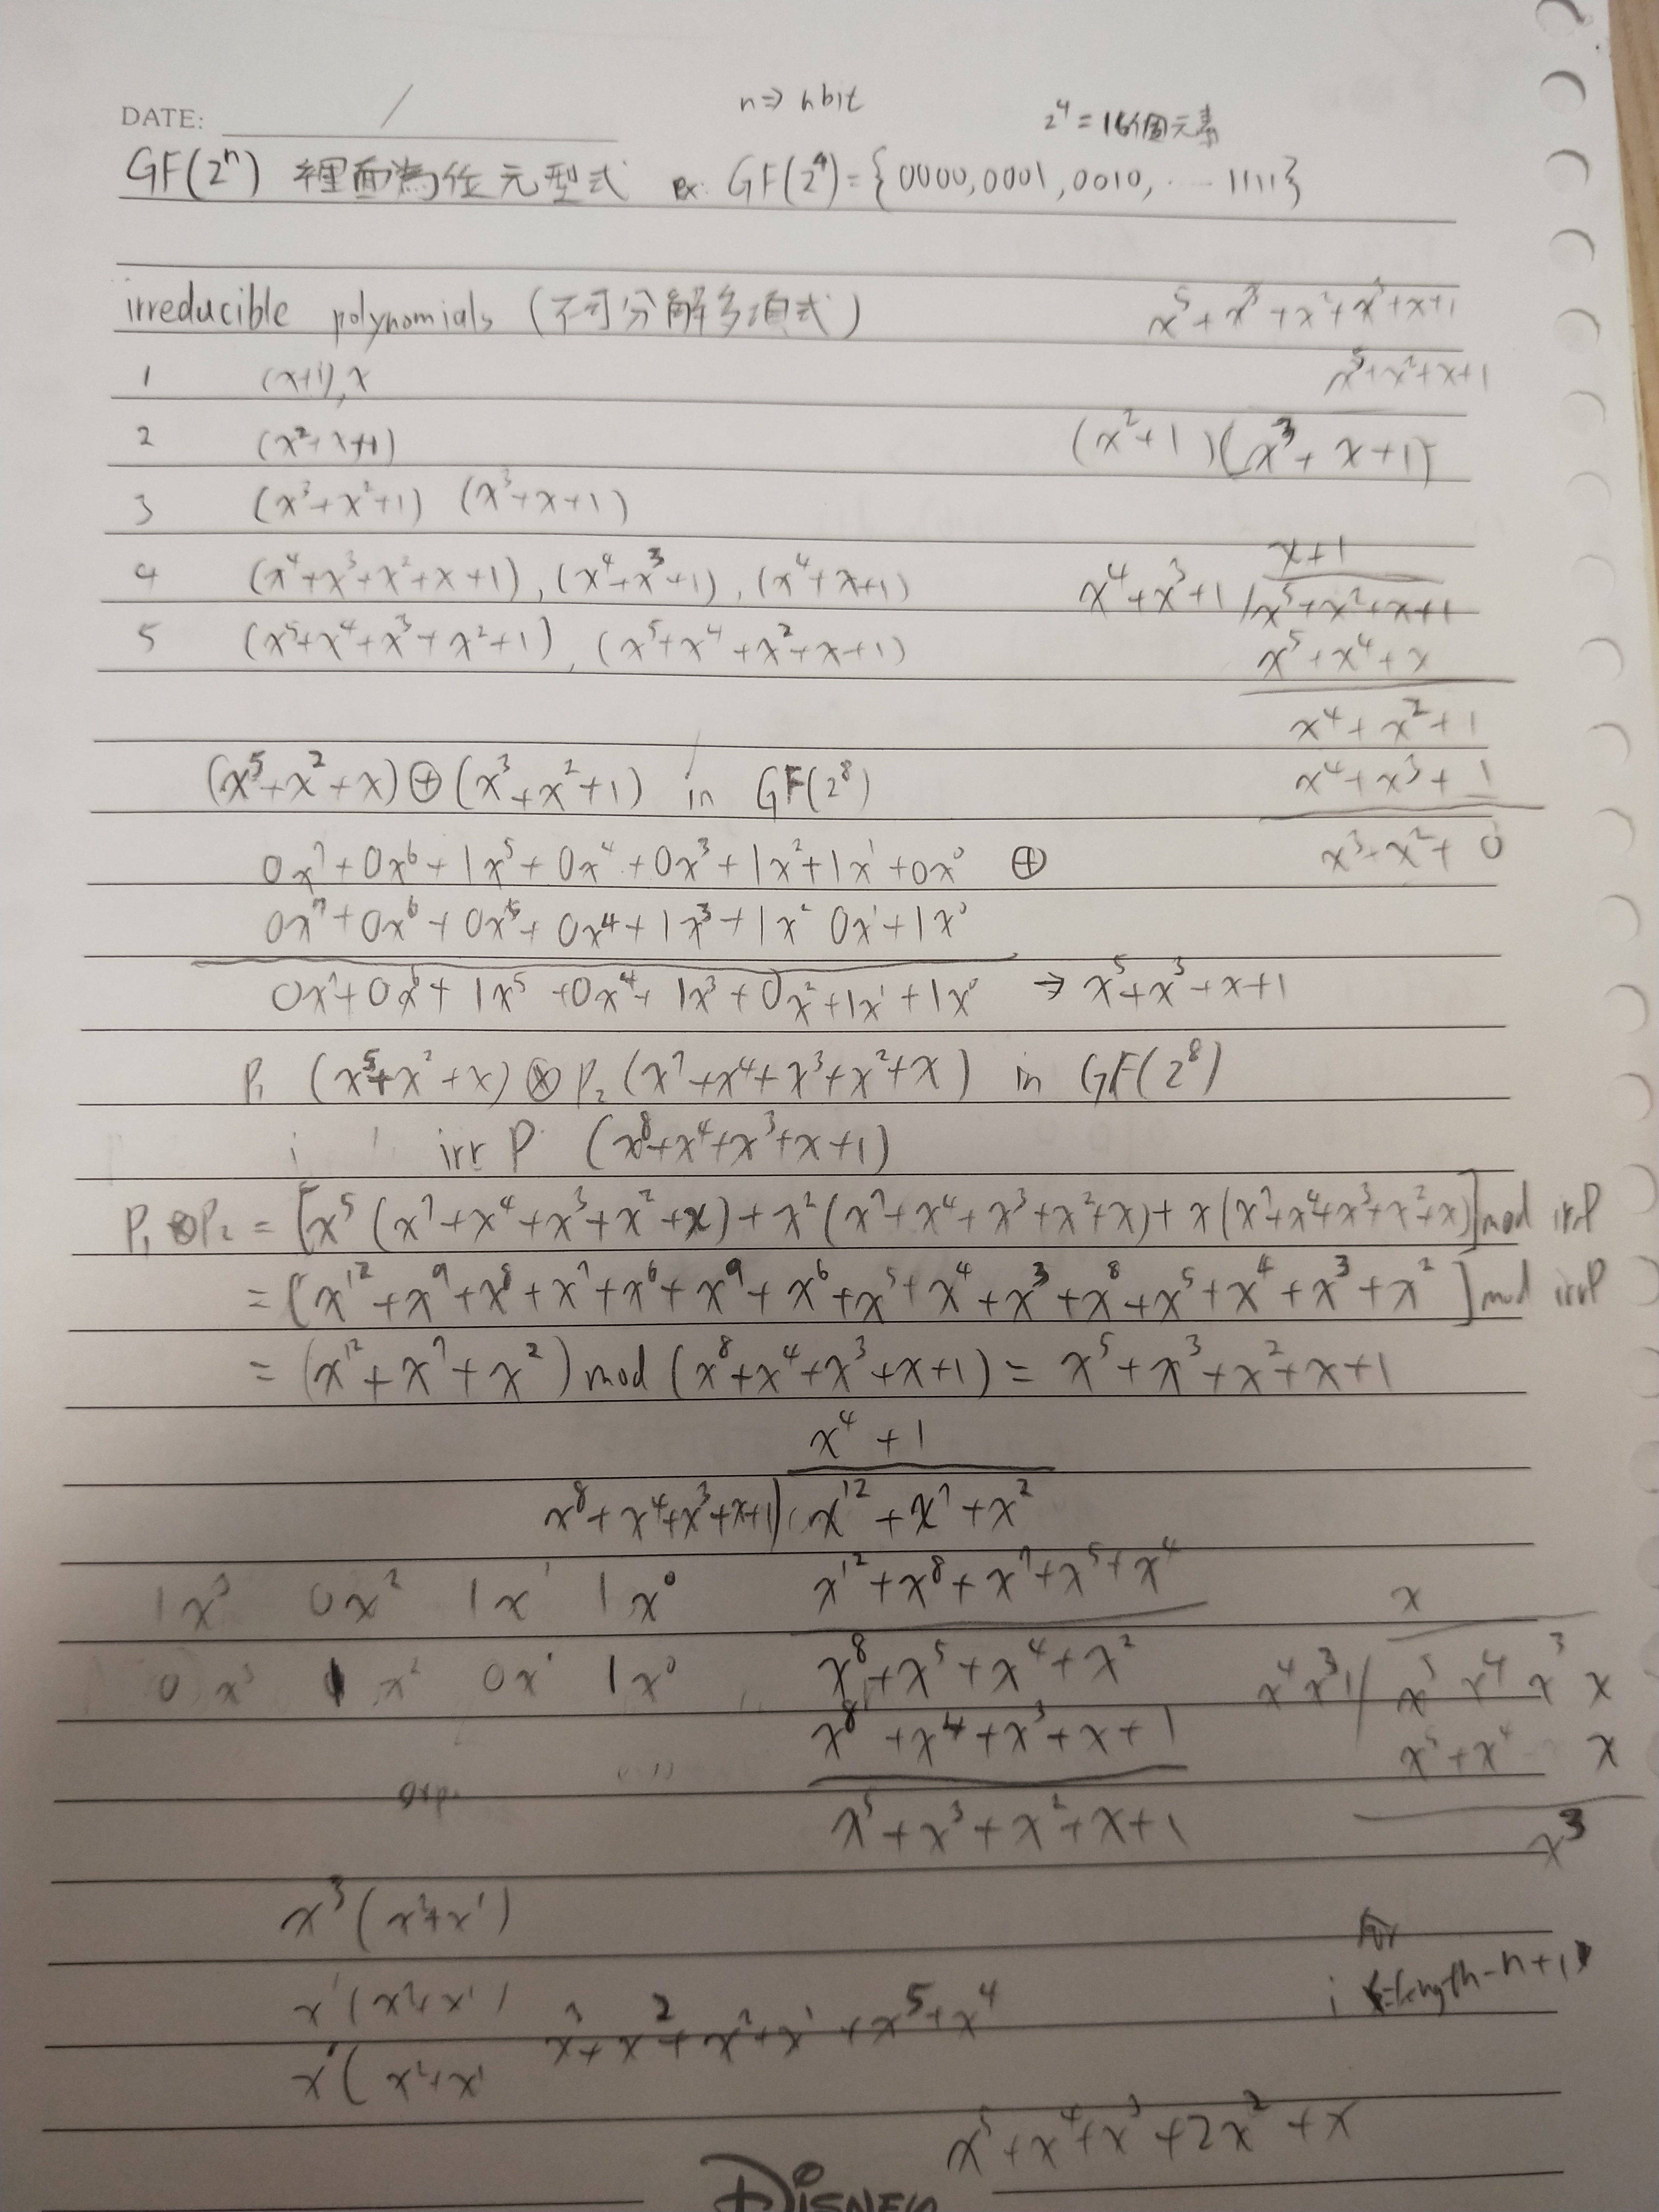 n⇒ nbit
2⁴ = 16個元素
DATE: /
GF(2ⁿ) 裡面為位元型式 ex: GF(2⁴) = {0000,0001,0010,... 1111}
irreducible polynomials (不可分解多項式)
x⁵+x³+x²+x³+x+1
1 (x+1),x
x⁵+x²+x+1
2 (x²+x+1)
(x²+1)(x³+x+1)
3 (x³+x²+1) (x³+x+1)
x+1
4 (x⁴+x³+x²+x+1), (x⁴+x³+1), (x⁴+x+1)
x⁴+x³+1 / x⁵+x²+x+1
5 (x⁵+x⁴+x³+x²+1), (x⁵+x⁴+x²+x+1)
x⁵+x⁴+x
x⁴+x²+1
(x⁵+x²+x)⊕(x³+x²+1) in GF(2⁸)
x⁴+x³+1
0x⁷+0x⁶+1x⁵+0x⁴+0x³+1x²+1x¹+0x⁰ ⊕
x³+x²+0
0x⁷+0x⁶+0x⁵+0x⁴+1x³+1x² 0x¹+1x⁰
0x⁷+0x⁶+1x⁵+0x⁴+1x³+0x²+1x¹+1x⁰ → x⁵+x³+x+1
P₁ (x⁵+x²+x)⊗P₂(x⁷+x⁴+x³+x²+x) in GF(2⁸)
irr P (x⁸+x⁴+x³+x+1)
P₁⊗P₂ = [x⁵(x⁷+x⁴+x³+x²+x)+x²(x⁷+x⁴+x³+x²+x)+x(x⁷+x⁴+x³+x²+x)] mod irrP
= [x¹²+x⁹+x⁸+x⁷+x⁶+x⁹+x⁶+x⁵+x⁴+x³+x⁸+x⁵+x⁴+x³+x²] mod irrP
= (x¹²+x⁷+x²) mod (x⁸+x⁴+x³+x+1) = x⁵+x³+x²+x+1
x⁴+1
x⁸+x⁴+x³+x+1) x¹²+x⁷+x²
1x³ 0x² 1x¹ 1x⁰
x¹²+x⁸+x⁷+x⁵+x⁴
x
0x³ 1x² 0x¹ 1x⁰
x⁸+x⁵+x⁴+x²
x⁴x³1 / x⁵ x⁴ x³ x
x⁸+x⁴+x³+x+1
x⁵+x⁴ x
x⁵+x³+x²+x+1
x³
x³(x²+x¹)
for
x¹(x²+x¹)
i <=length-n+1
x³+x²+x²+x¹+x⁵+x⁴
x⁰(x²+x¹
x⁵+x⁴+x³+2x²+x
DISNEY